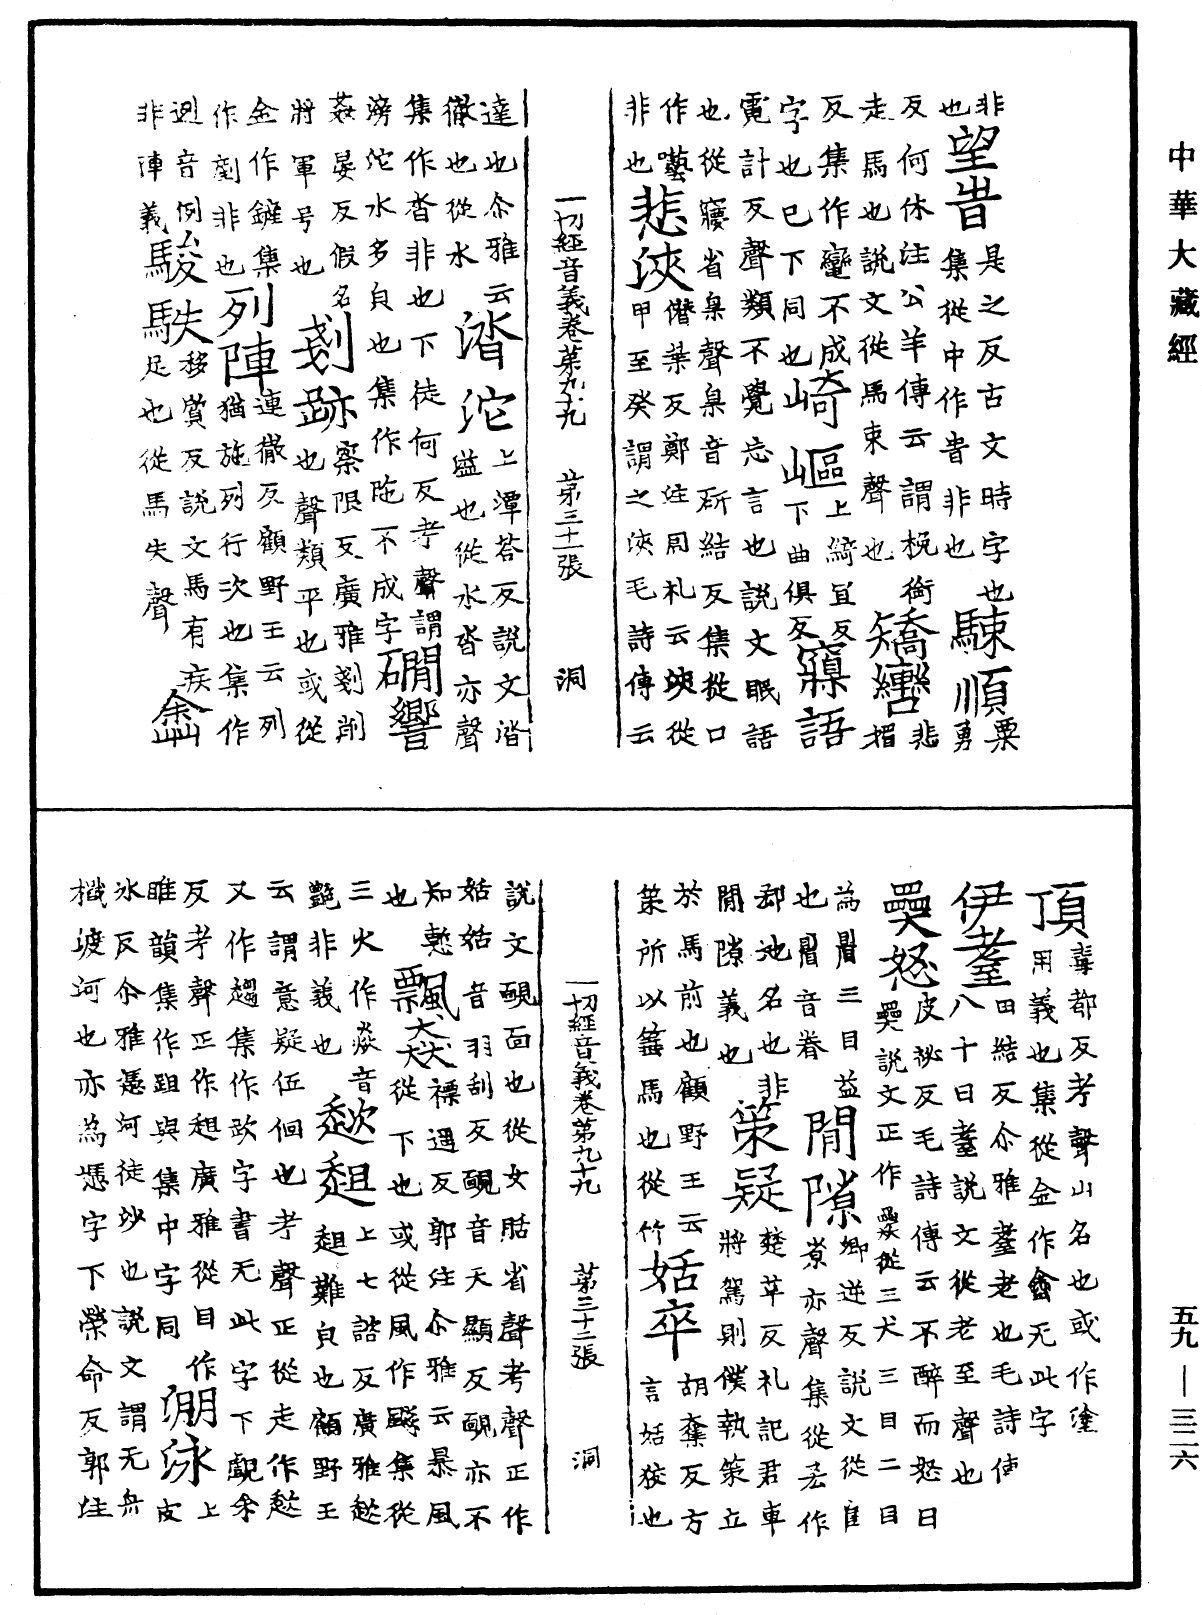 中華大藏經
非
也望峕是之反古文時字也騋順粟勇
反何休注公羊傳云謂梡銜
走馬也說文從馬束聲也矯轡
反集作㢌不成
字也已下同也崎嶇上綺宜反下曲俱反寱語
霓計反聲類不覺忘言也說文眠語
也從㝱省臬聲臬音硏結反集從口
作囈
非也悲浹僭葉反鄭注周札云浹從甲至癸謂之浹毛詩傳云
一切經音義卷苐九十九 苐三十一張 洞
達也尒雅云
徹也從水㳫沱上潭荅反說文涾溢也從水沓亦聲
集作沓非也下徒何反考聲謂
滂沱水多皃也集作陁不成字㵎響
姦晏反假名
將軍号也剗跡察限反廣雅剗削也聲類平也或從
金作鏟集
作剗非也列陣連徹反顧野王云列
猫施列行次也集作
迾音例
非陣義駿駃移質反說文馬有疾足也從馬失聲
頂毒都反考聲山名也或作塗
用義也集從金作無此字
伊耋田結反尒雅耋老也毛詩傳
八十曰耋說文從老至聲也
奰怒皮祕反毛詩傳云不醉而怒曰
奰說文正作從三犬三目二目
為三目益
也音眷
郄地名也非閒隙卿逆反說文從𨸏
亦聲集從作
閒隙義也策疑楚革反礼記君車
將駕則僕執策立
於馬前也顧野王云
策所以䇲馬也從竹姡卒胡奪反方
言姡狡也
一切經音義卷第九十九 第三十二張 洞
說文䩄面也從女䛡省聲考聲正作
姡姡音羽刮反䩄音天顯反䩄亦不
知慙
也飄猋褾遥反郭注尒雅云暴風
從下也或從風作飈集從
三火作焱音
艷非義也趑趄上七諮反廣雅趑
趄難皃也顧野王
云謂意疑伍佪也考聲正從走作趑
又作趦集作㰣字書无此字下覰余
反考聲正作趄廣雅從目作
睢韻集作跙與集中字同淜泳上皮
氷反尒雅憑河徒涉也說文謂无舟
檝渡河也亦為憑字下榮命反郭注
五九—三二六